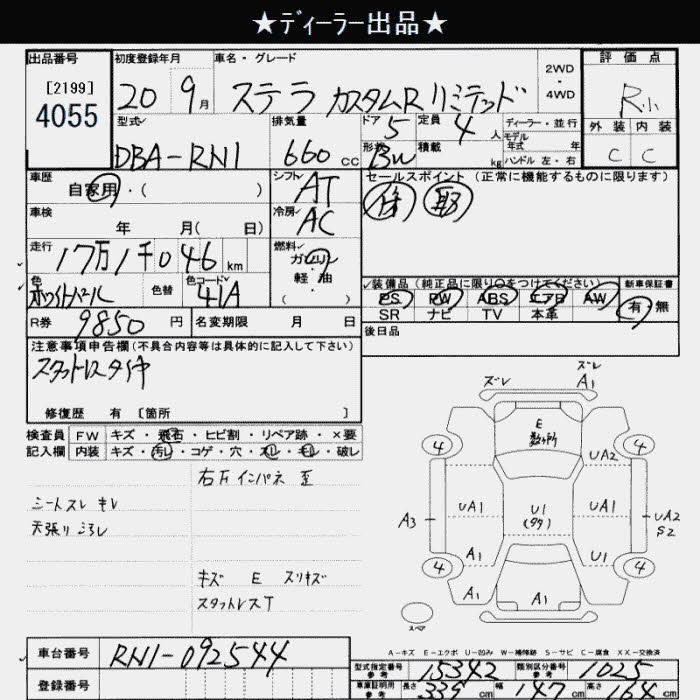 ★ディーラー出品★
出品番号 初度登録年月 車名・グレード 2WD・4WD 評価点
[2199]
4055
20 9月 ステラ カスタムR リミテッド R小
型式 排気量 ドア 定員 ディーラー・並行 外装 内装
DBA-RN1 660cc 5 4人 モデル年式 年
形状 BW 積載 kg ハンドル 左・右 C C
車歴 自家用・( ) シフト AT セールスポイント(正常に機能するものに限ります)
保 取
車検 年 月( 日) 冷房 AC
走行 17万1千046km 燃料 ガソリン・軽・油( )
色 ホワイトパール 色替 色コード 41A
装備品(純正品に限り○をつけてください) 新車保証書
PS PW ABS エアB AW 有・無
SR ナビ TV 本革
R券 9850円 名変期限 月 日 後日品
注意事項申告欄(不具合内容等は具体的に記入して下さい)
スタットレスタイヤ
修復歴 有 [箇所 ]
検査員 FW キズ・飛石・ヒビ割・リペア跡・×要
記入欄 内装 キズ・汚レ・コゲ・穴・スレ・キレ・破レ
右下インパネ 歪
シートスレ キレ
天張り ヨゴレ
キズ E スリキズ
スタットレスT
ズレ ズレ
A1
E
数ヶ所
4 4
UA2
A3 UA1 U1 UA1 UA2
S2
A1 U1
4 4
A1 A1
スペア
A-キズ E-エクボ U-凹み W-補修跡 S-サビ C-腐食 XX-交換済
車台番号 RN1-092544
型式指定番号 参考 15342 類別区分番号 参考 1025
登録番号
車庫証明用 参考 長さ 339cm 幅 147cm 高さ cm